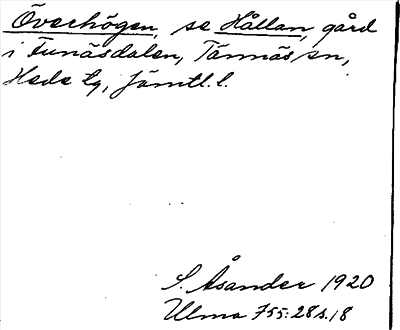 Överhögen, se Hållan, gård
i Funäsdalen, Tännäs sn,
Hede tg, Jämtl. l.
S. Åsander 1920
Ulma 755:28 s. 18